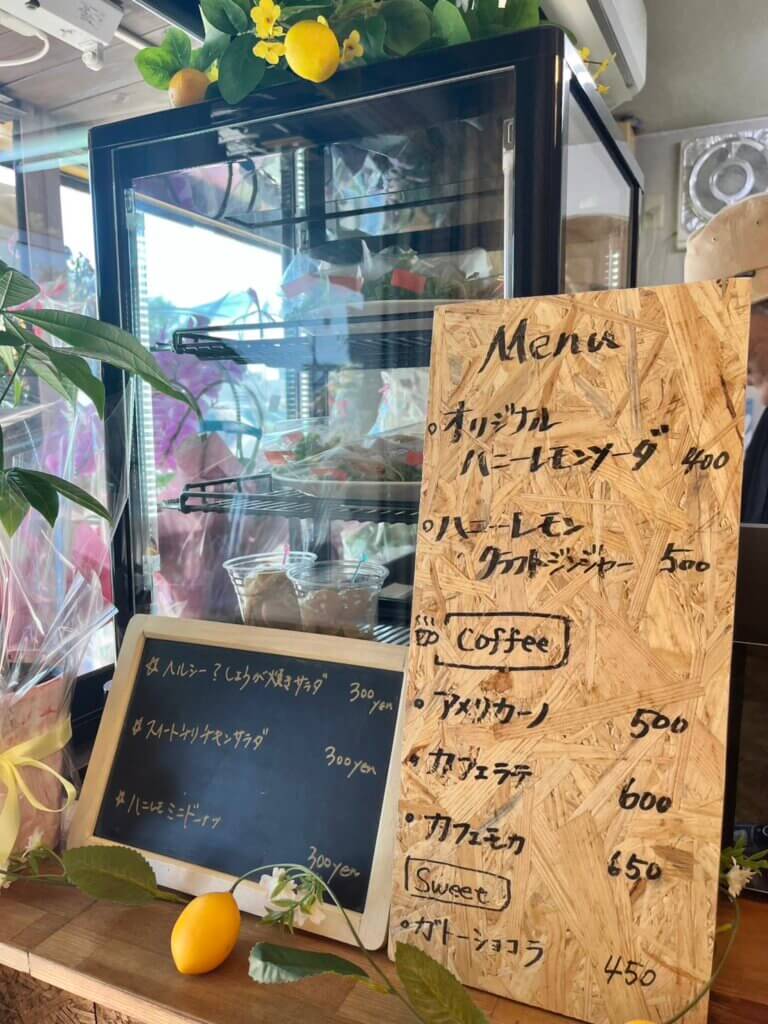 Menu
オリジナル
ハニーレモンソーダ 400
ハニーレモン
クラフトジンジャー 500
Coffee
アメリカーノ 500
カフェラテ 600
カフェモカ 650
Sweet
ガトーショコラ 450
ヘルシー?しょうが焼きサラダ 300yen
スイートチリチキンサラダ 300yen
ハニレモミニドーナツ 300yen